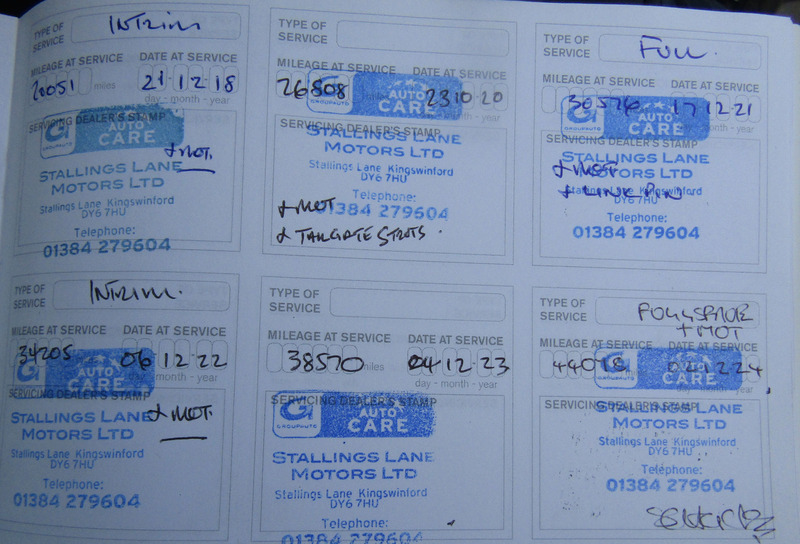 TYPE OF SERVICE INTRIM
MILEAGE AT SERVICE DATE AT SERVICE
20051 miles 21 12 18
day - month - year
SERVICING DEALER'S STAMP
G GROUPAUTO AUTO CARE
+ MOT.
STALLINGS LANE
MOTORS LTD
Stallings Lane Kingswinford
DY6 7HU
Telephone:
01384 279604
TYPE OF SERVICE
MILEAGE AT SERVICE DATE AT SERVICE
26808 23 10 20
G GROUPAUTO AUTO CARE
SERVICING DEALER'S STAMP
STALLINGS LANE
MOTORS LTD
Stallings Lane Kingswinford
DY6 7HU
Telephone:
+ MOT 01384 279604
+ TAILGATE STRUTS.
TYPE OF SERVICE FULL.
MILEAGE AT SERVICE DATE AT SERVICE
30526 17 12 21
month - year
G GROUPAUTO AUTO CARE
SERVICING DEALER'S STAMP
STALLINGS LANE
MOTORS LTD
+ MOT
+ LINK PIN
Stallings Lane Kingswinford
DY6 7HU
Telephone:
01384 279604
TYPE OF SERVICE INTRIM.
MILEAGE AT SERVICE DATE AT SERVICE
34205 06 12 22
day - month - year
G AUTO CARE
SERVICING DEALER'S STAMP
STALLINGS LANE + MOT.
MOTORS LTD
Stallings Lane Kingswinford
DY6 7HU
Telephone:
01384 279604
TYPE OF SERVICE
MILEAGE AT SERVICE DATE AT SERVICE
38570 miles 04 12 23
day - month - year
SERVICING DEALER'S STAMP
G GROUPAUTO AUTO CARE
STALLINGS LANE
MOTORS LTD
Stallings Lane Kingswinford
DY6 7HU
Telephone:
01384 279604
TYPE OF SERVICE
+ MOT
MILEAGE AT SERVICE DATE AT SERVICE
02 12 24
G AUTO CARE
year
SERVICING DEALER'S STAMP
STALLINGS LANE
MOTORS LTD
Stallings Lane Kingswinford
DY6 7HU
Telephone:
01384 279604